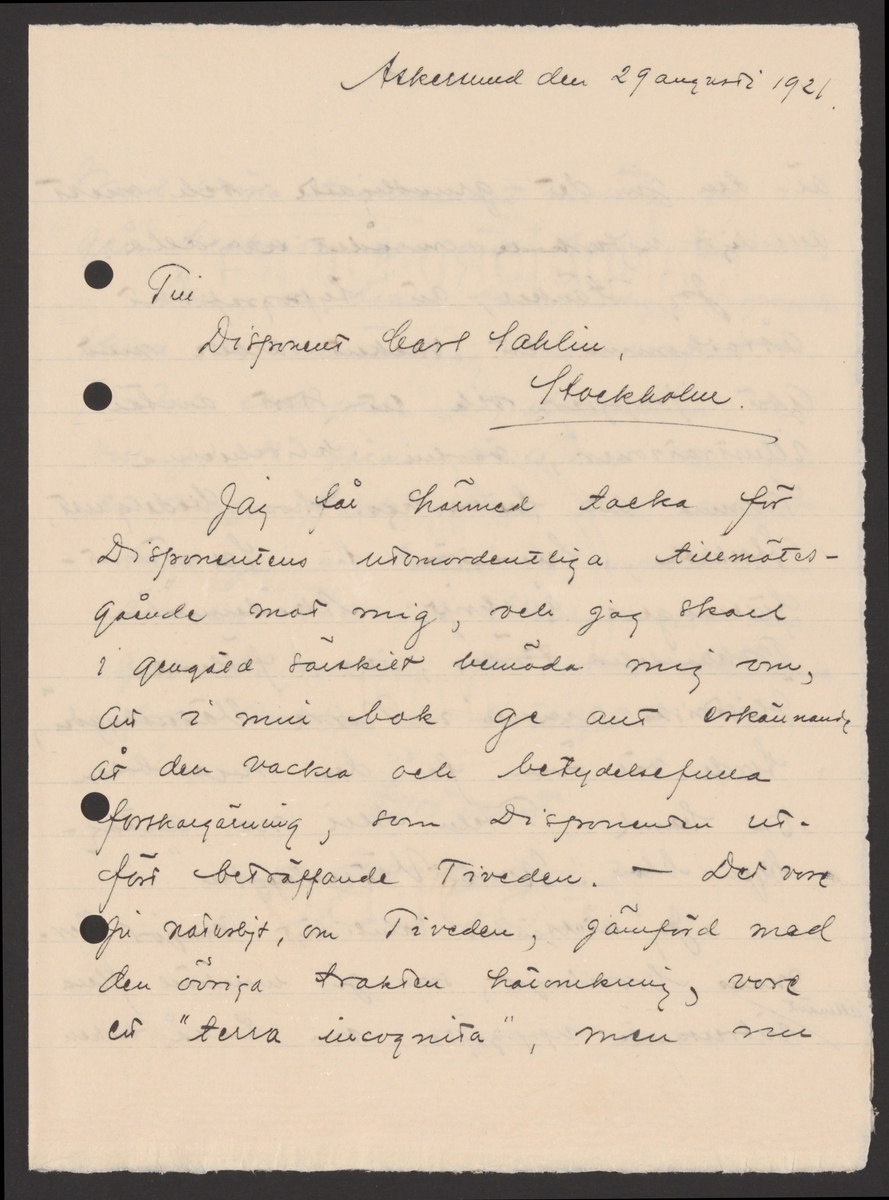 Askersund den 29 augusti 1921.
Till
Disponent Carl Sahlin,
Stockholm.
Jag får härmed tacka för
Disponentens utomordentliga tillmötes-
gående mot mig, och jag skall
i gengäld särskilt bemöda mig om,
att i min bok ge allt erkännande
åt den vackra och betydelsefulla
forskargärning, som Disponenten ut-
fört beträffande Tiveden. — Det vore
ju naturligt, om Tiveden, jämförd med
den övriga trakten häromkring, vore
ett "terra incognita", men nu